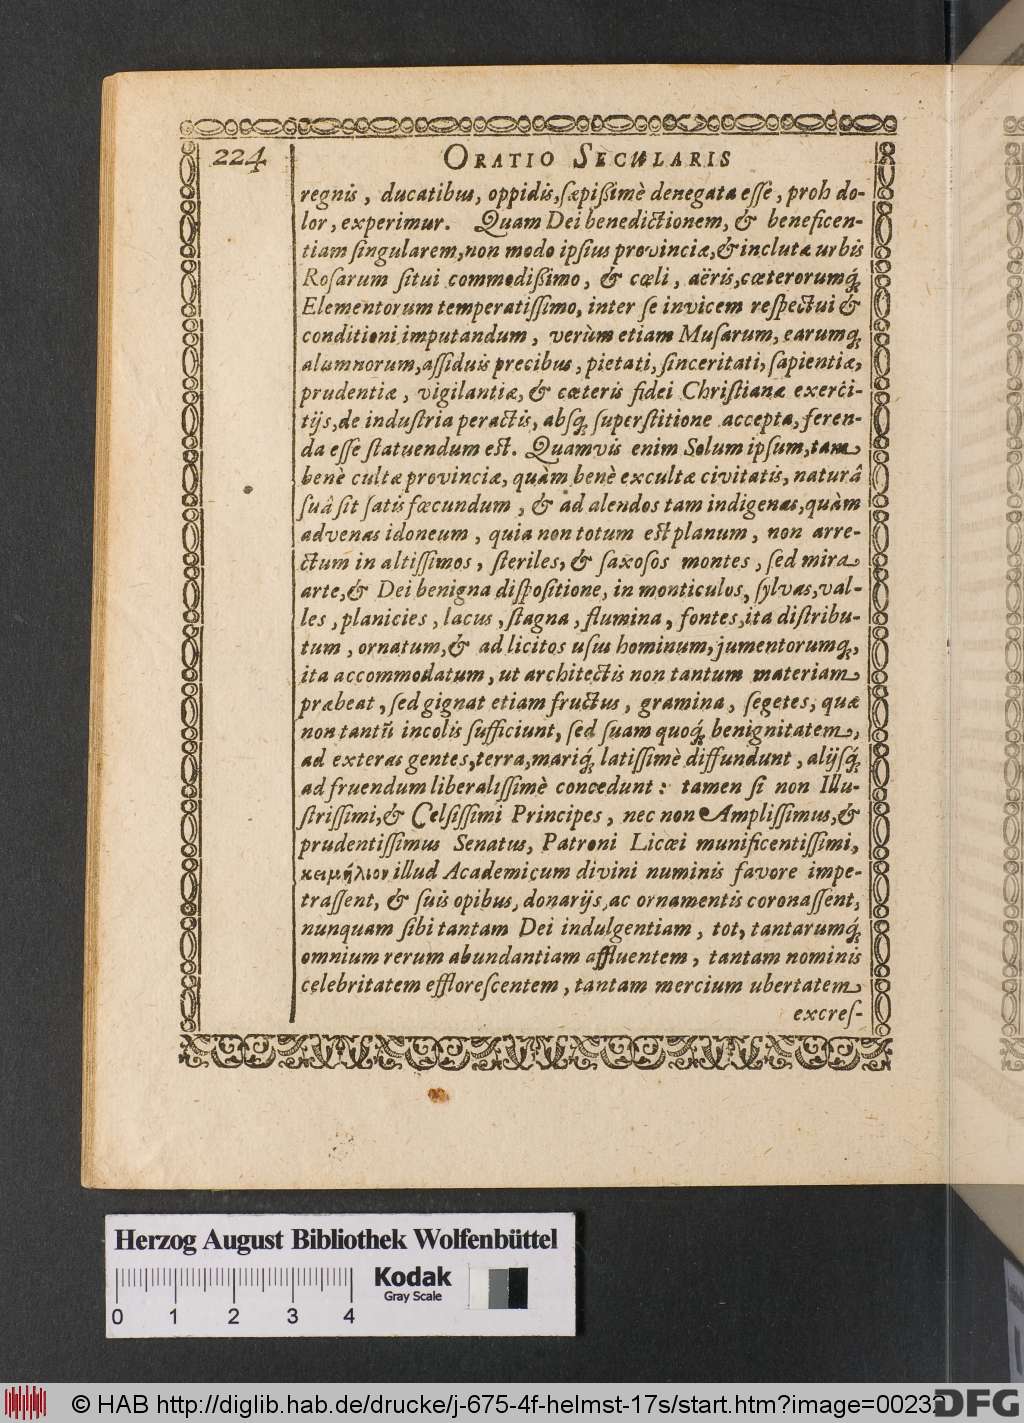 224
ORATIO SECULARIS
regnis, ducatibus, oppidis, sæpißimè denegata esse, proh do-
lor, experimur. Quam Dei benedictionem, & beneficen-
tiam singularem, non modo ipsius provinciæ, & inclutæ urbis
Rosarum situi commodißimo, & cœli, aëris, cæterorumq́;
Elementorum temperatissimo, inter se invicem respectui &
conditioni imputandum, verùm etiam Musarum, earumq;
alumnorum, assiduis precibus, pietati, sinceritati, sapientiæ,
prudentiæ, vigilantiæ, & cæteris fidei Christianæ exerci-
tijs, de industria peractis, absq; superstitione accepta, feren-
da esse statuendum est. Quamvis enim Solum ipsum, tam
benè cultæ provinciæ, quàm benè excultæ civitatis, naturâ
suâ sit satis fœcundum, & ad alendos tam indigenas, quàm
advenas idoneum, quia non totum est planum, non arre-
ctum in altissimos, steriles, & saxosos montes, sed mira
arte, & Dei benigna dispositione, in monticulos, sylvas, val-
les, planicies, lacus, stagna, flumina, fontes, ita distribu-
tum, ornatum, & ad licitos usus hominum, jumentorumq;,
ita accommodatum, ut architectis non tantum materiam
præbeat, sed gignat etiam fructus, gramina, segetes, quæ
non tantũ incolis sufficiunt, sed suam quoq́; benignitatem,
ad exteras gentes, terra, mariq́; latissimè diffundunt, alijsq́;
ad fruendum liberalissimè concedunt: tamen si non Illu-
strissimi, & Celsissimi Principes, nec non Amplissimus, &
prudentissimus Senatus, Patroni Licæi munificentissimi,
κειμήλιον illud Academicum divini numinis favore impe-
trassent, & suis opibus, donarijs, ac ornamentis coronassent,
nunquam sibi tantam Dei indulgentiam, tot, tantarumq́;
omnium rerum abundantiam affluentem, tantam nominis
celebritatem efflorescentem, tantam mercium ubertatem
excres-
Herzog August Bibliothek Wolfenbüttel
Kodak
Gray Scale
0 1 2 3 4
© HAB http://diglib.hab.de/drucke/j-675-4f-helmst-17s/start.htm?image=00232
DFG